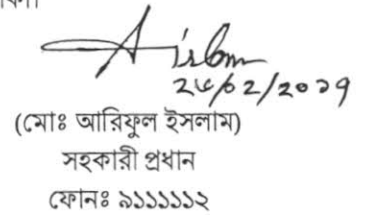 ২৫/০২/২০১৭
(মোঃ আরিফুল ইসলাম)
সহকারী প্রধান
ফোনঃ ৯১১১১১২